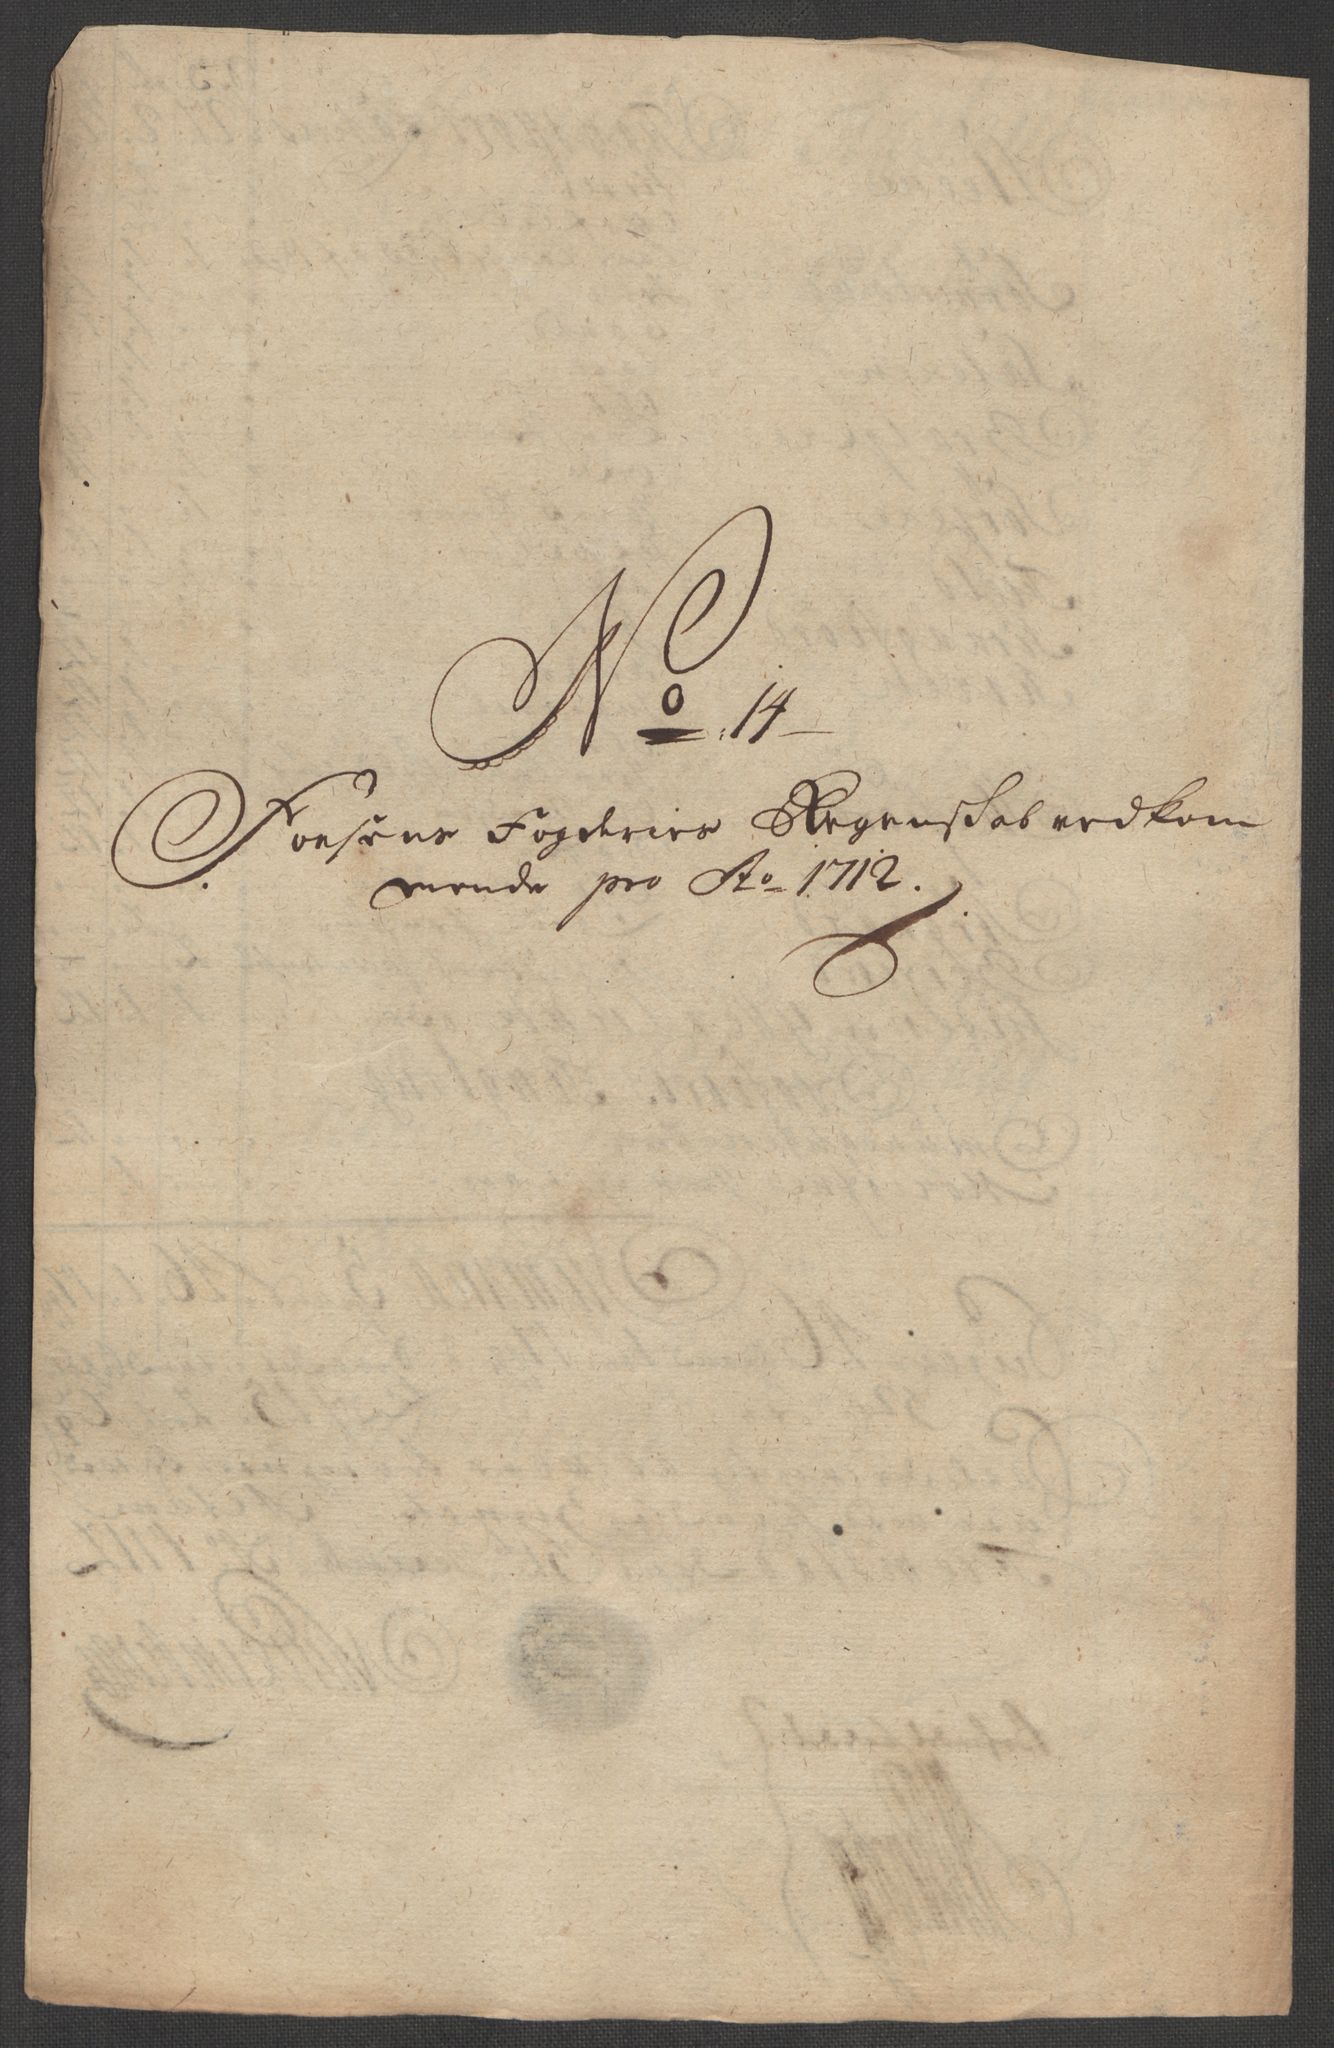 No. 14
Foesens Fogderies Regenskab vedkom
mende pro Ao 1712.